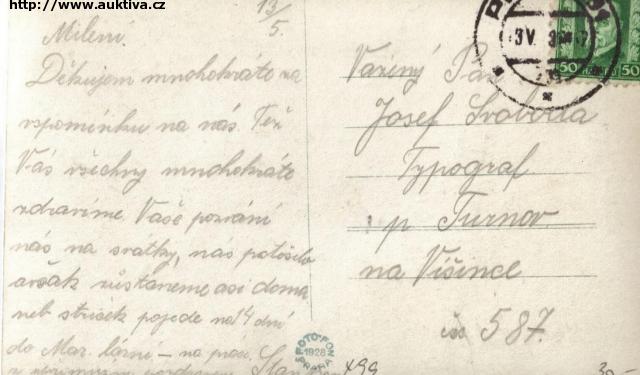 http://www.auktiva.cz
13/5.
Milení.
Děkujem mnohokráte za
vzpomínku na nás. Též
Vás všechny mnohokráte
zdravíme. Vaše pozvání
nás na svátky, nás potěšilo
avšak zůstaneme asi doma
neb strýček pojede na 14 dní
do Mar. lázní – na práci.
Vážený Pán
Josef Svoboda
Typograf
p Turnov
na Višince
čís 587.
50
50
FOTO-FON
1928
PRAHA
x99
30-